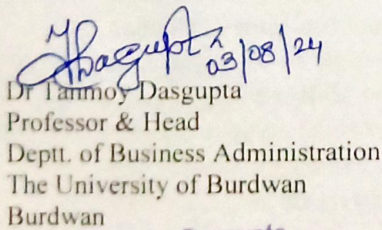 Dasgupta
03/08/24
Dr Tanmoy Dasgupta
Professor & Head
Deptt. of Business Administration
The University of Burdwan
Burdwan